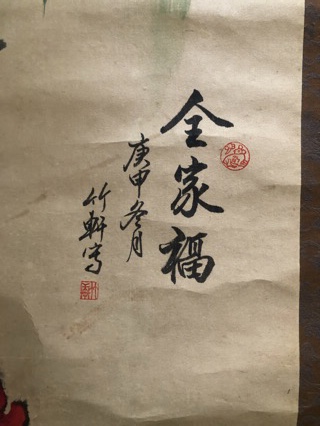 全家福
庚申冬月
竹軒写